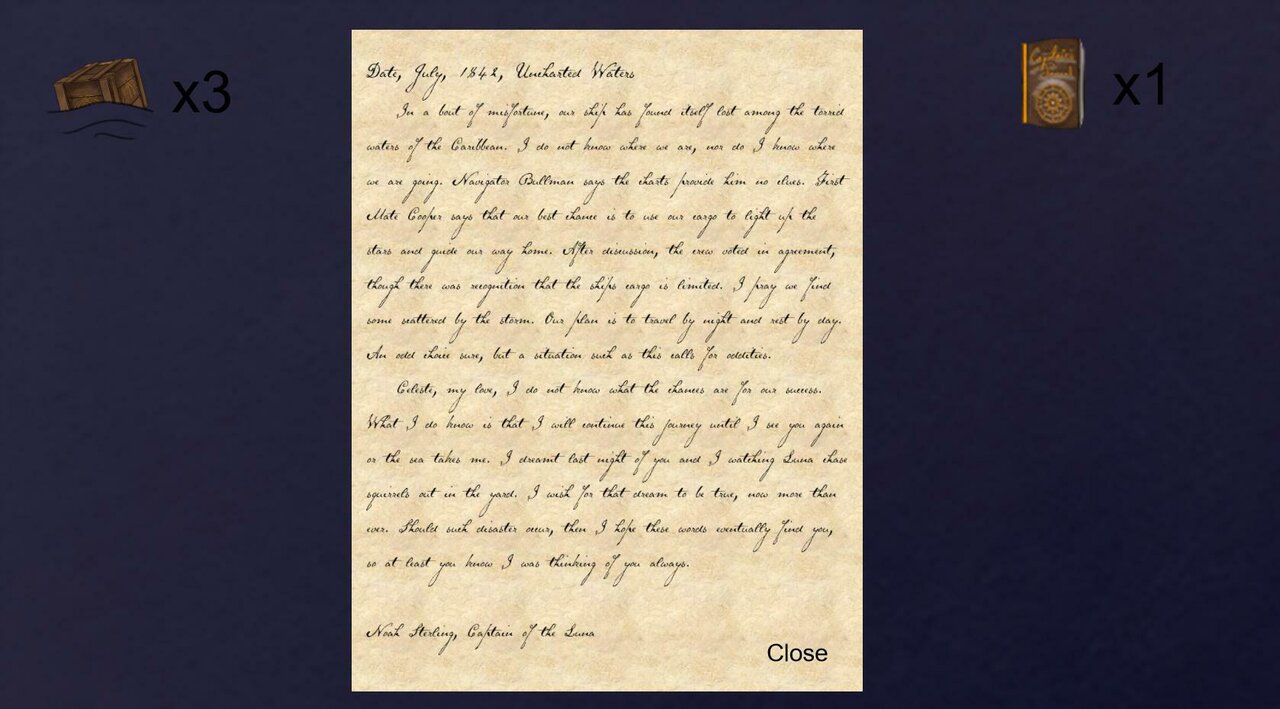 x3
Captain's
Journal
x1
Date, July, 1842, Uncharted Waters
In a bout of misfortune, our ship has found itself lost among the torrid
waters of the Caribbean. I do not know where we are, nor do I know where
we are going. Navigator Bullman says the charts provide him no clues. First
Mate Cooper says that our best chance is to use our cargo to light up the
stars and guide our way home. After discussion, the crew voted in agreement,
though there was recognition that the ships cargo is limited. I pray we find
some scattered by the storm. Our plan is to travel by night and rest by day.
An odd choice sure, but a situation such as this calls for oddities.
Celeste, my love, I do not know what the chances are for our success.
What I do know is that I will continue this journey until I see you again
or the sea takes me. I dreamt last night of you and I watching Luna chase
squirrels out in the yard. I wish for that dream to be true, now more than
ever. Should such disaster occur, then I hope these words eventually find you,
so at least you know I was thinking of you always.
Noah Sterling, Captain of the Luna
Close